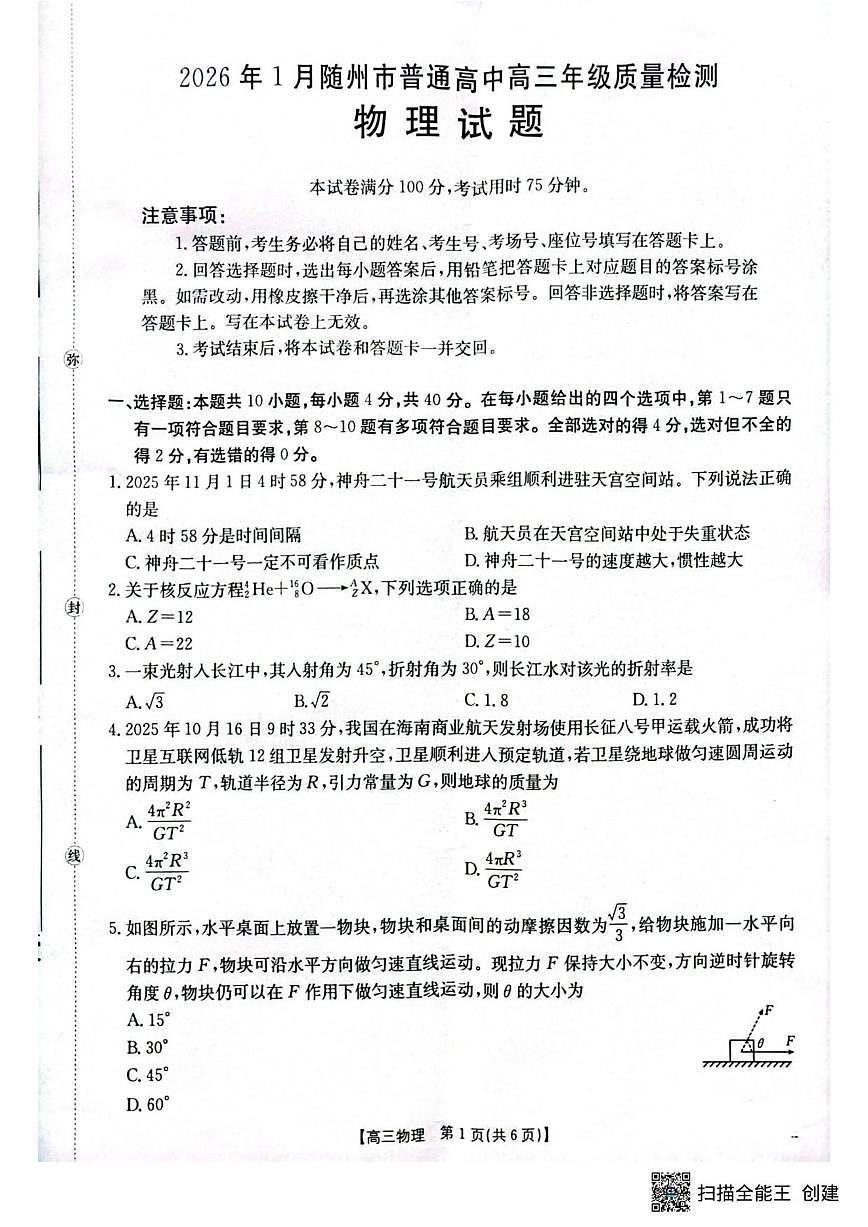 2026年1月随州市普通高中高三年级质量检测
物理试题
本试卷满分100分,考试用时75分钟。
注意事项:
1.答题前,考生务必将自己的姓名、考生号、考场号、座位号填写在答题卡上。
2.回答选择题时,选出每小题答案后,用铅笔把答题卡上对应题目的答案标号涂
黑。如需改动,用橡皮擦干净后,再选涂其他答案标号。回答非选择题时,将答案写在
答题卡上。写在本试卷上无效。
3.考试结束后,将本试卷和答题卡一并交回。
弥
一、选择题:本题共10小题,每小题4分,共40分。在每小题给出的四个选项中,第1~7题只
有一项符合题目要求,第8~10题有多项符合题目要求。全部选对的得4分,选对但不全的
得2分,有选错的得0分。
1. 2025年11月1日4时58分,神舟二十一号航天员乘组顺利进驻天宫空间站。下列说法正确
的是
A. 4时58分是时间间隔 B. 航天员在天宫空间站中处于失重状态
C. 神舟二十一号一定不可看作质点 D. 神舟二十一号的速度越大,惯性越大
2. 关于核反应方程⁴₂He+¹⁶₈O⟶ᴬ_ZX,下列选项正确的是
封
A. Z=12 B. A=18
C. A=22 D. Z=10
3. 一束光射入长江中,其入射角为45°,折射角为30°,则长江水对该光的折射率是
A. √3 B. √2 C. 1.8 D. 1.2
4. 2025年10月16日9时33分,我国在海南商业航天发射场使用长征八号甲运载火箭,成功将
卫星互联网低轨12组卫星发射升空,卫星顺利进入预定轨道,若卫星绕地球做匀速圆周运动
的周期为T,轨道半径为R,引力常量为G,则地球的质量为
A. 4π²R²/GT² B. 4π²R³/GT
线
C. 4π²R³/GT² D. 4πR³/GT²
5. 如图所示,水平桌面上放置一物块,物块和桌面间的动摩擦因数为√3/3,给物块施加一水平向
右的拉力F,物块可沿水平方向做匀速直线运动。现拉力F保持大小不变,方向逆时针旋转
角度θ,物块仍可以在F作用下做匀速直线运动,则θ的大小为
A. 15°
B. 30°
C. 45°
D. 60°
F
θ F
【高三物理 第1页(共6页)】
扫描全能王 创建